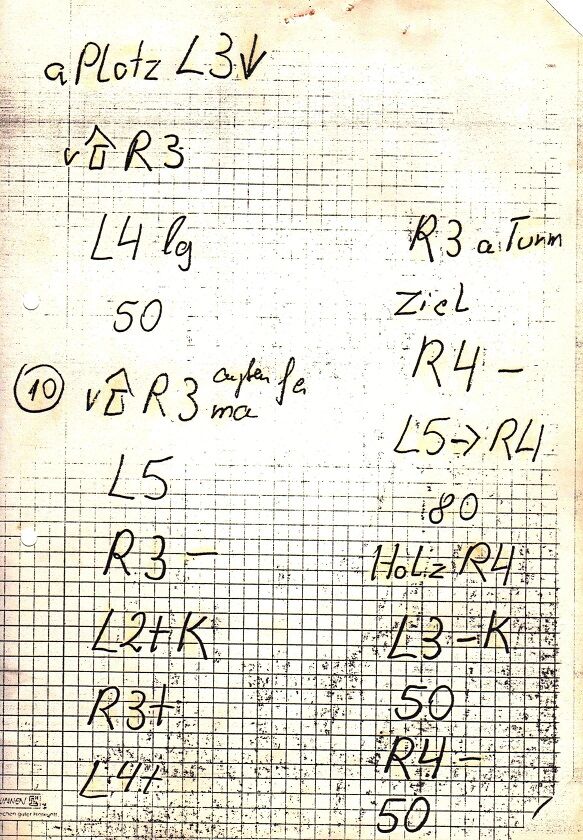 a Platz L3↓
v⇧ R3
L4 lg
50
10 v⇧ R3 außen
ma
L5
R3 −
L2+K
R3+
L4+
R3 a Turm
Ziel
R4 −
L5→R4
80
Holz R4
L3 −K
50
R4 −
50